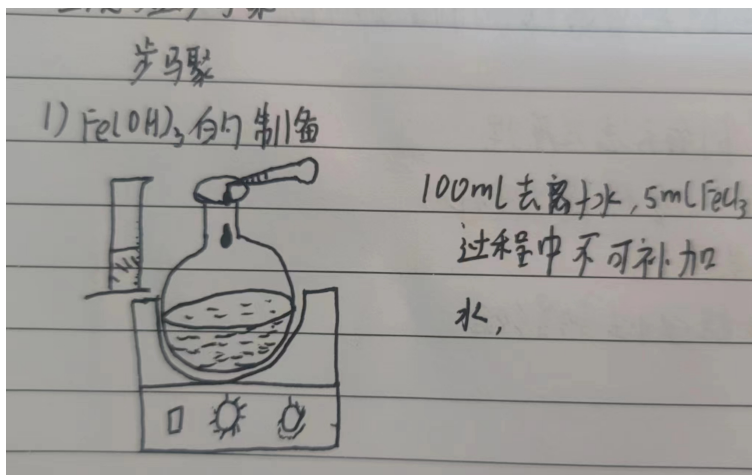 步骤
1) Fe(OH)₃的制备
100ml去离子水,5mLFeCl₃
过程中不可补加
水,